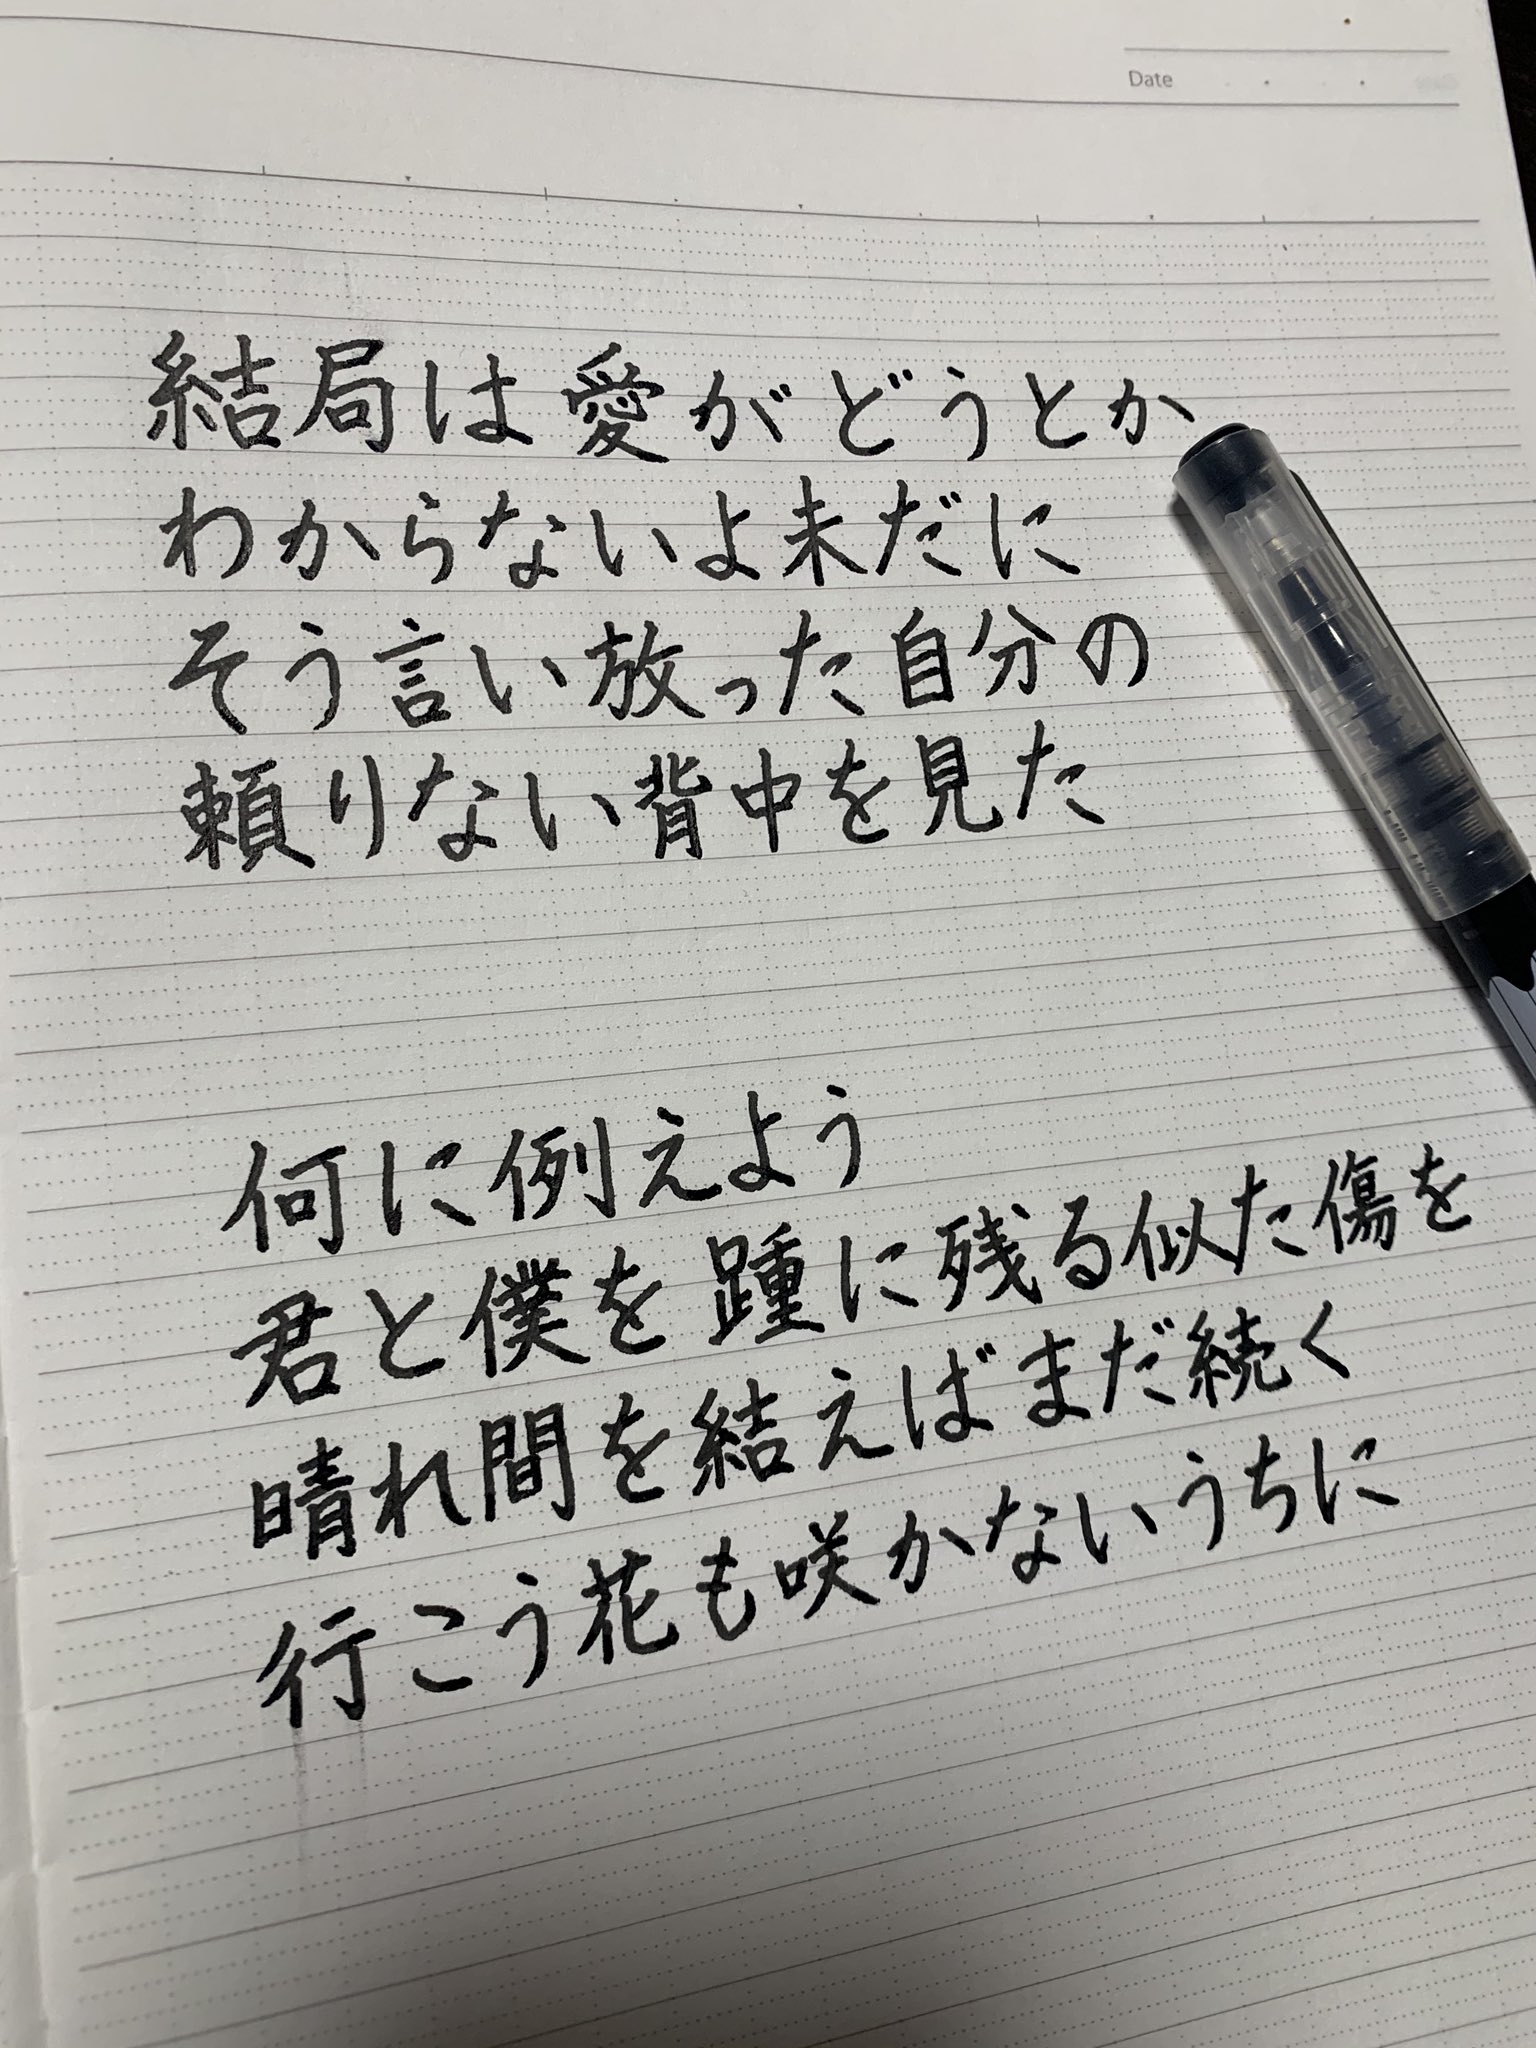 Date
結局は愛がどうとか
わからないよ未だに
そう言い放った自分の
頼りない背中を見た
何に例えよう
君と僕を踵に残る似た傷を
晴れ間を結えばまだ続く
行こう花も咲かないうちに